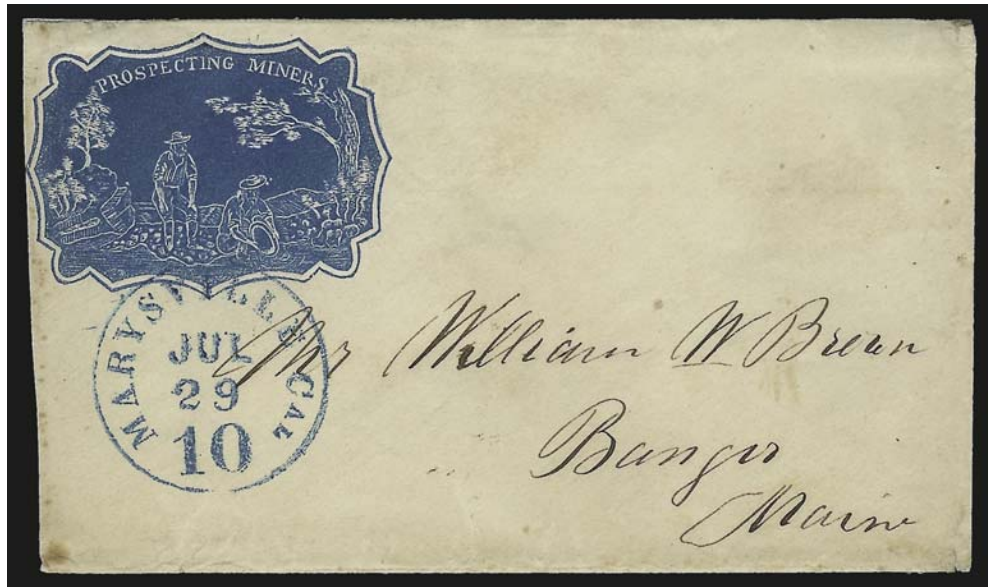 PROSPECTING MINERS
MARYSVILLE CAL
JUL
29
10
Mr William W Brown
Bangor
Maine